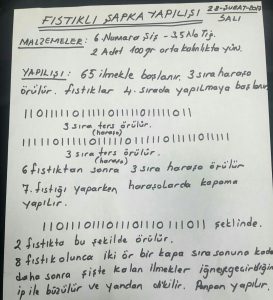 FISTIKLI ŞAPKA YAPILIŞI
28-ŞUBAT-
SALI
MALZEMELER: 6 Numara Şiş - 3.5 No Tığ.
2 Adet 100 gr orta kalınlıkta yün.
YAPILIŞI: 65 ilmekle başlanır. 3 sıra haraşo
örülür. fıstıklar 4. sırada yapılmaya başlanır
3 sıra ters örülür.
(haraşo)
3 sıra ters örülür.
(haraşo)
6 fıstıktan sonra 3 sıra haraşo örülür
7. fıstığı yaparken haraşolarda kapama
yapılır.
şeklinde.
2 fıstıkta bu şekilde örülür.
8 fıstık olunca iki ör bir kapa sıra sonuna kadar
daha sonra şişte kalan ilmekler iğneye
ip ile büzülür ve yandan dikilir. Ponpon yapılır.